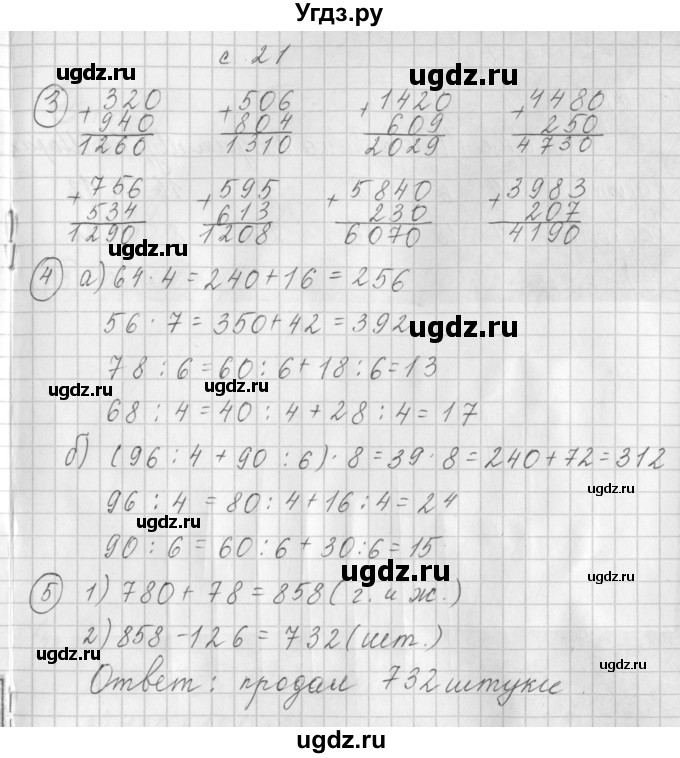 Угдз.ру
с. 21
ugdz.ru ugdz.ru
3 320 + 940 = 1260   506 + 804 = 1310   1420 + 609 = 2029   4480 + 250 = 4730
756 + 534 = 1290   595 + 613 = 1208   5840 + 230 = 6070   3983 + 207 = 4190
ugdz.ru
4 а) 64 · 4 = 240 + 16 = 256
56 · 7 = 350 + 42 = 392
ugdz.ru
78 : 6 = 60 : 6 + 18 : 6 = 13
ugdz.ru ugdz.ru
68 : 4 = 40 : 4 + 28 : 4 = 17
б) (96 : 4 + 90 : 6) · 8 = 39 · 8 = 240 + 72 = 312
ugdz.ru
96 : 4 = 80 : 4 + 16 : 4 = 24
ugdz.ru
90 : 6 = 60 : 6 + 30 : 6 = 15
ugdz.ru
5 1) 780 + 78 = 858 (г. и ж.)
2) 858 - 126 = 732 (шт.)
ugdz.ru ugdz.ru
Ответ: продали 732 штуки
ugdz.ru